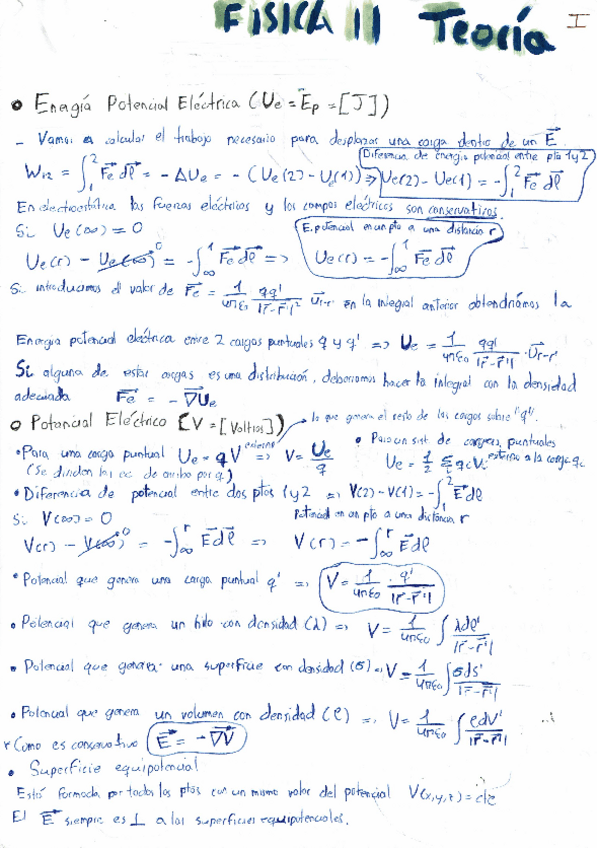 FISICA II Teoría I
• Energía Potencial Eléctrica (Ue = Ep = [J])
- Vamos a calcular el trabajo necesario para desplazar una carga dentro de un E⃗.
Diferencia de energía potencial entre pto 1 y 2
W₁₂ = ∫₁² F⃗e dl⃗ = - ΔUe = - (Ue(2) - Ue(1)) => Ue(2) - Ue(1) = -∫₁² F⃗e dl⃗
En electrostática las fuerzas eléctricas y los campos eléctricos son conservativos.
Si Ue(∞) = 0
E. potencial en un pto a una distancia r
Ue(r) - Ue(∞)⁰ = -∫∞^r F⃗e dl⃗ => Ue(r) = -∫∞^r F⃗e dl⃗
Si introducimos el valor de F⃗e = 1/4πε₀ qq'/|r⃗-r⃗'|² u⃗r-r' en la integral anterior obtendríamos la
Energía potencial eléctrica entre 2 cargas puntuales q y q' => Ue = 1/4πε₀ qq'/|r⃗-r⃗'| · u⃗r-r'
Si alguna de estas cargas es una distribución, deberíamos hacer la integral con la densidad
adecuada F⃗e = - ∇⃗Ue
○ Potencial Eléctrico [V = [Voltios]) lo que genera el resto de las cargas sobre "q".
• Para una carga puntual Ue = qV externo => V = Ue/q
(Se dividen las ec de arriba por q)
• Para un sist de cargas puntuales
Ue = 1/2 Σ qi Vi externo a la carga qi
• Diferencia de potencial entre dos ptos 1 y 2 => V(2) - V(1) = -∫₁² E⃗ dl⃗
Si V(∞) = 0 Potencial en un pto a una distancia r
V(r) - V(∞)⁰ = -∫∞^r E⃗ dl⃗ => V(r) = -∫∞^r E⃗ dl⃗
• Potencial que genera una carga puntual q' => V = 1/4πε₀ · q'/|r⃗-r⃗'|
• Potencial que genera un hilo con densidad (λ) => V = 1/4πε₀ ∫ λdl'/|r⃗-r⃗'|
• Potencial que genera una superficie con densidad (σ) => V = 1/4πε₀ ∫ σds'/|r⃗-r⃗'|
• Potencial que genera un volumen con densidad (ρ) => V = 1/4πε₀ ∫ ρdV'/|r⃗-r⃗'|
* Como es conservativo E⃗ = - ∇⃗V
• Superficie equipotencial
Está formada por todos los ptos con un mismo valor del potencial V(x,y,z) = cte
El E⃗ siempre es ⊥ a las superficies equipotenciales.